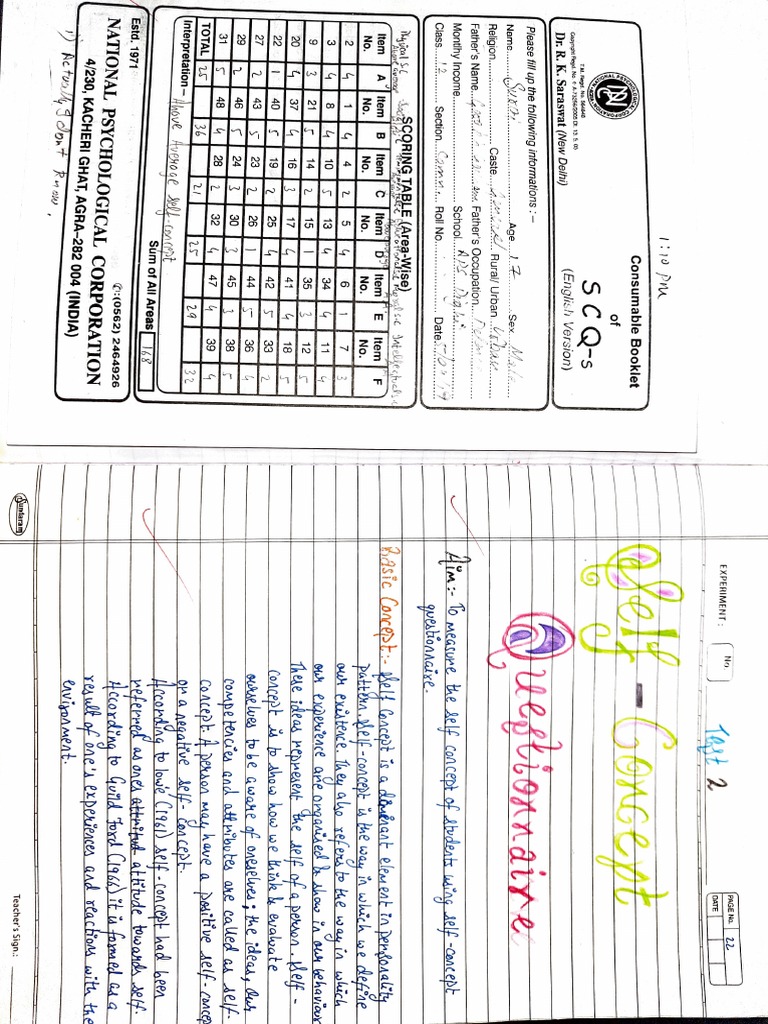 1:10 PM
Consumable Booklet
of
SCQ-S
(English Version)
T.M. Regd. No. 564840
Dr. R. K. Saraswat (New Delhi)
Please fill up the following informations :–
Name Age 17 Sex Male
Religion Caste Rural/ Urban Urban
Father's Name Father's Occupation
Monthly Income School APS
Class 12 Section Roll No. Date
SCORING TABLE (Area-Wise)
Item No. A Item No. B Item No. C Item No. D Item No. E Item No. F
2 4 1 4 4 2 5 4 6 1 7 3
3 4 8 4 10 5 13 4 34 4 11 4
9 3 21 5 14 2 15 1 35 3 12 5
20 4 37 4 16 3 17 4 41 4 18 5
22 1 40 5 19 2 25 4 42 5 33 2
27 2 43 5 23 2 26 1 44 5 36 4
29 2 46 5 24 3 30 3 45 3 38 5
31 5 48 4 28 2 32 4 47 4 39 4
TOTAL 25 36 21 25 29 32
Interpretation – Above Average Self-concept
Sum of All Areas 168
Estd. 1971 ✆:(0562) 2464926
NATIONAL PSYCHOLOGICAL CORPORATION
4/230, KACHERI GHAT, AGRA-282 004 (INDIA)
1) Actually I don't know,
EXPERIMENT : No.
Test 2
PAGE No. 22
DATE
Self-Concept
Questionnaire
Aim:- To measure the self concept of students using self-concept
questionnaire.
Basic Concept:- Self Concept is a dominant element in personality
pattern. Self-concept is the way in which we define
our existence. They also refers to the way in which
our experience are organised & show in our behaviour
These ideas represent the self of a person. Self-
concept is to show how we think & evaluate
ourselves to be aware of oneselves; the ideas, our
competencies and attributes are called as self-
concept. A person may have a positive self-concept
or a negative self-concept.
According to Lowe (1961) self-concept had been
referred as ones attitude towards self.
According to Guild Ford (1916) it is formed as a
result of one's experiences and reactions with the
environment.
Sundaram
Teacher's Sign.: